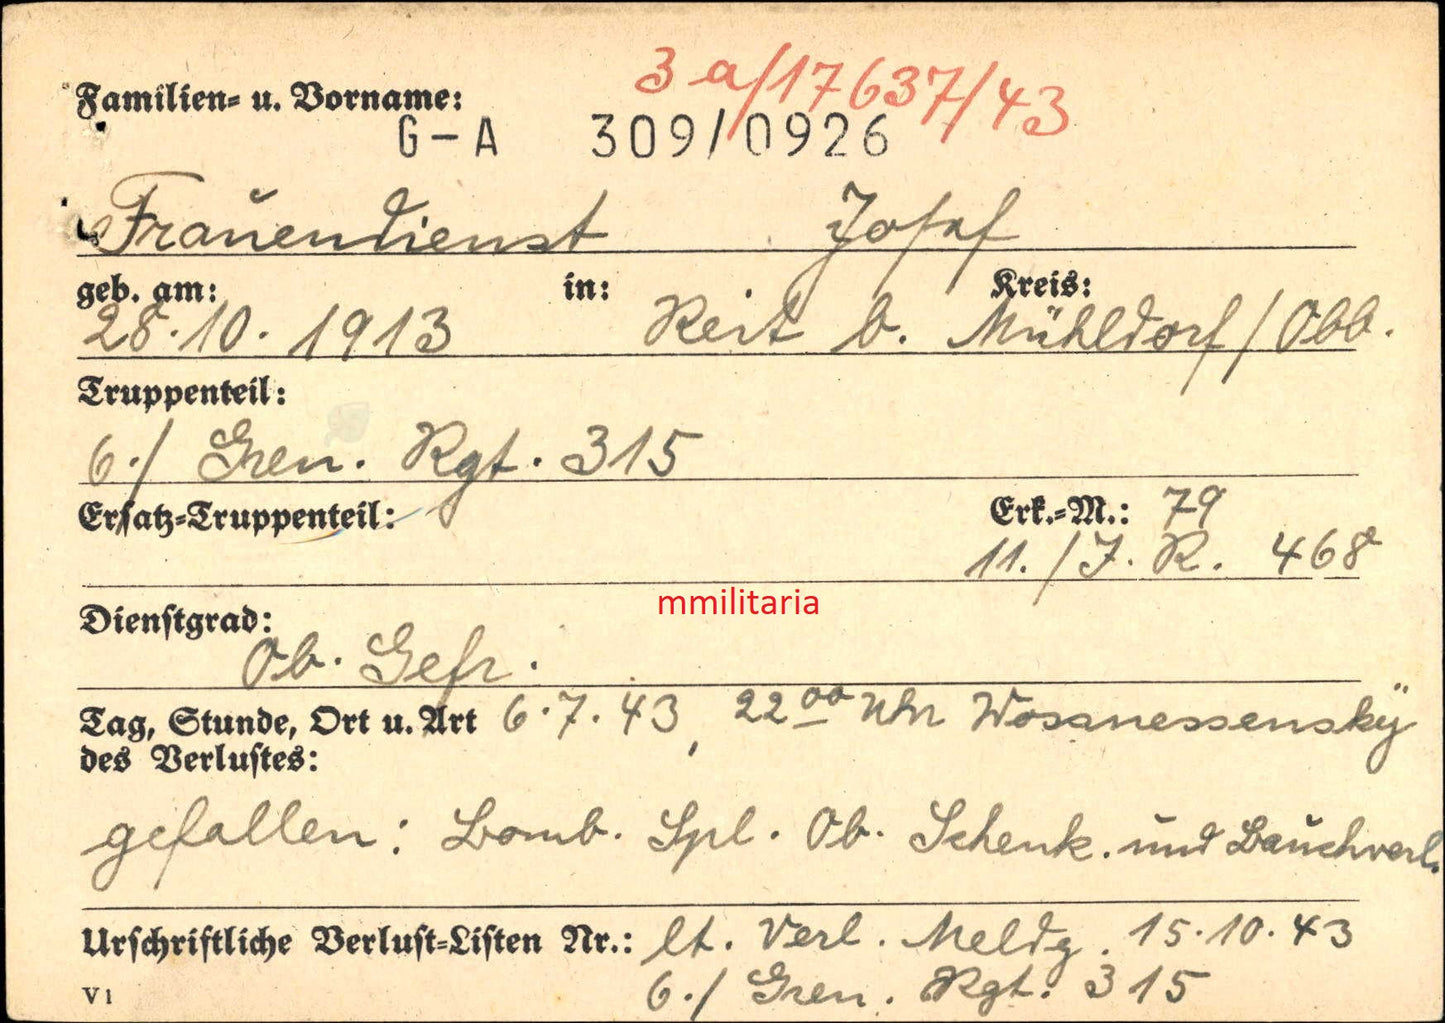 3 a/17637/43
Familien= u. Vorname:
G-A 309/0926
Frauendienst Josef
geb. am: in: Kreis:
28.10.1913 Reit b. Mühldorf/Obb.
Truppenteil:
6./ Gren. Rgt. 315
Ersatz=Truppenteil: Erk.=M.: 79
11./J.R. 468
mmilitaria
Dienstgrad:
Ob. Gefr.
Tag, Stunde, Ort u. Art 6.7.43, 22⁰⁰ Uhr Wossnessensky
des Verlustes:
gefallen: Bomb. Spl. Ob. Schenk. und Bauchverl.
Urschriftliche Verlust=Listen Nr.: lt. Verl. Meldg. 15.10.43
V1 6./ Gren. Rgt. 315